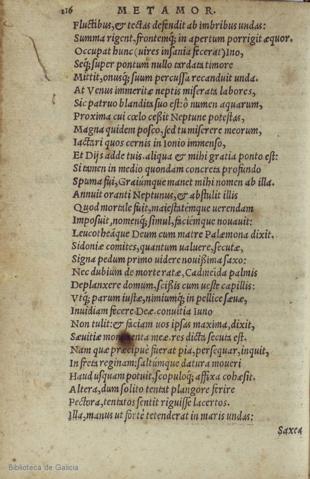 216 METAMOR.
Fluctibus, & tectas defendit ab imbribus undas:
Summa riget, frontemq; in apertum porrigit æquor.
Occupat hunc (uires insania fecerat) Ino,
Seq; super pontum nullo tardata timore
Mittit, onusq; suum percussa recanduit unda.
At Venus immeritæ neptis miserata labores,
Sic patruo blandita suo est: ô numen aquarum,
Proxima cui cœlo cessit Neptune potestas,
Magna quidem posco, sed tu miserere meorum,
Iactari quos cernis in Ionio immenso,
Et Dijs adde tuis. aliqua & mihi gratia ponto est:
Si tamen in medio quondam concreta profundo
Spuma fui, Graiúmque manet mihi nomen ab illa.
Annuit oranti Neptunus, & abstulit illis
Quod mortale fuit, maiestatemque uerendam
Imposuit, nomenq; simul, faciemque nouauit:
Leucotheáque Deum cum matre Palæmona dixit.
Sidoniæ comites, quantum ualuere, secutæ,
Signa pedum primo uidere nouissima saxo:
Nec dubium de morte ratæ, Cadmeida palmis
Deplanxere domum, scissis cum ueste capillis:
Vtq; parum iustæ, nimiumq; in pellice sæuæ,
Inuidiam fecere Deæ. conuitia Iuno
Non tulit: & faciam uos ipsas maxima, dixit,
Sæuitiæ monumenta meæ. res dicta secuta est.
Nam quæ præcipuè fuerat pia, persequar, inquit,
In freta reginam: saltumque datura moueri
Haud usquam potuit, scopuloq; affixa cohæsit.
Altera, dum solito tentat plangore ferire
Pectora, tentatos sentit riguisse lacertos.
Illa, manus ut fortè tetenderat in maris undas:
Saxea
Biblioteca de Galicia